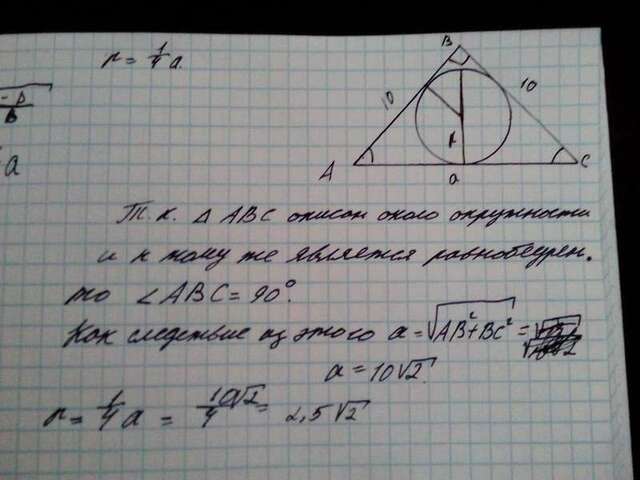 r = 1/4 a
B
10
10
r
A
a
C
a
Т.к. △ABC описан около окружности
и к тому же является равнобедрен.
то ∠ABC = 90°.
Как следствие из этого a = √AB²+BC² =
a = 10√2.
r = 1/4 a = 10√2/4 = 2,5√2